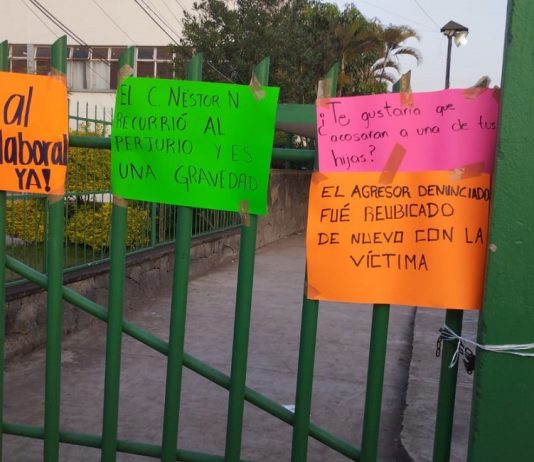 al
laboral
YA!
EL C. NÉSTOR N.
RECURRIÓ AL
PERJURIO Y ES
UNA GRAVEDAD
¿Te gustaría que
acosaran a una de tus
hijas?
EL AGRESOR DENUNCIADO
FUÉ REUBICADO
DE NUEVO CON LA
VÍCTIMA